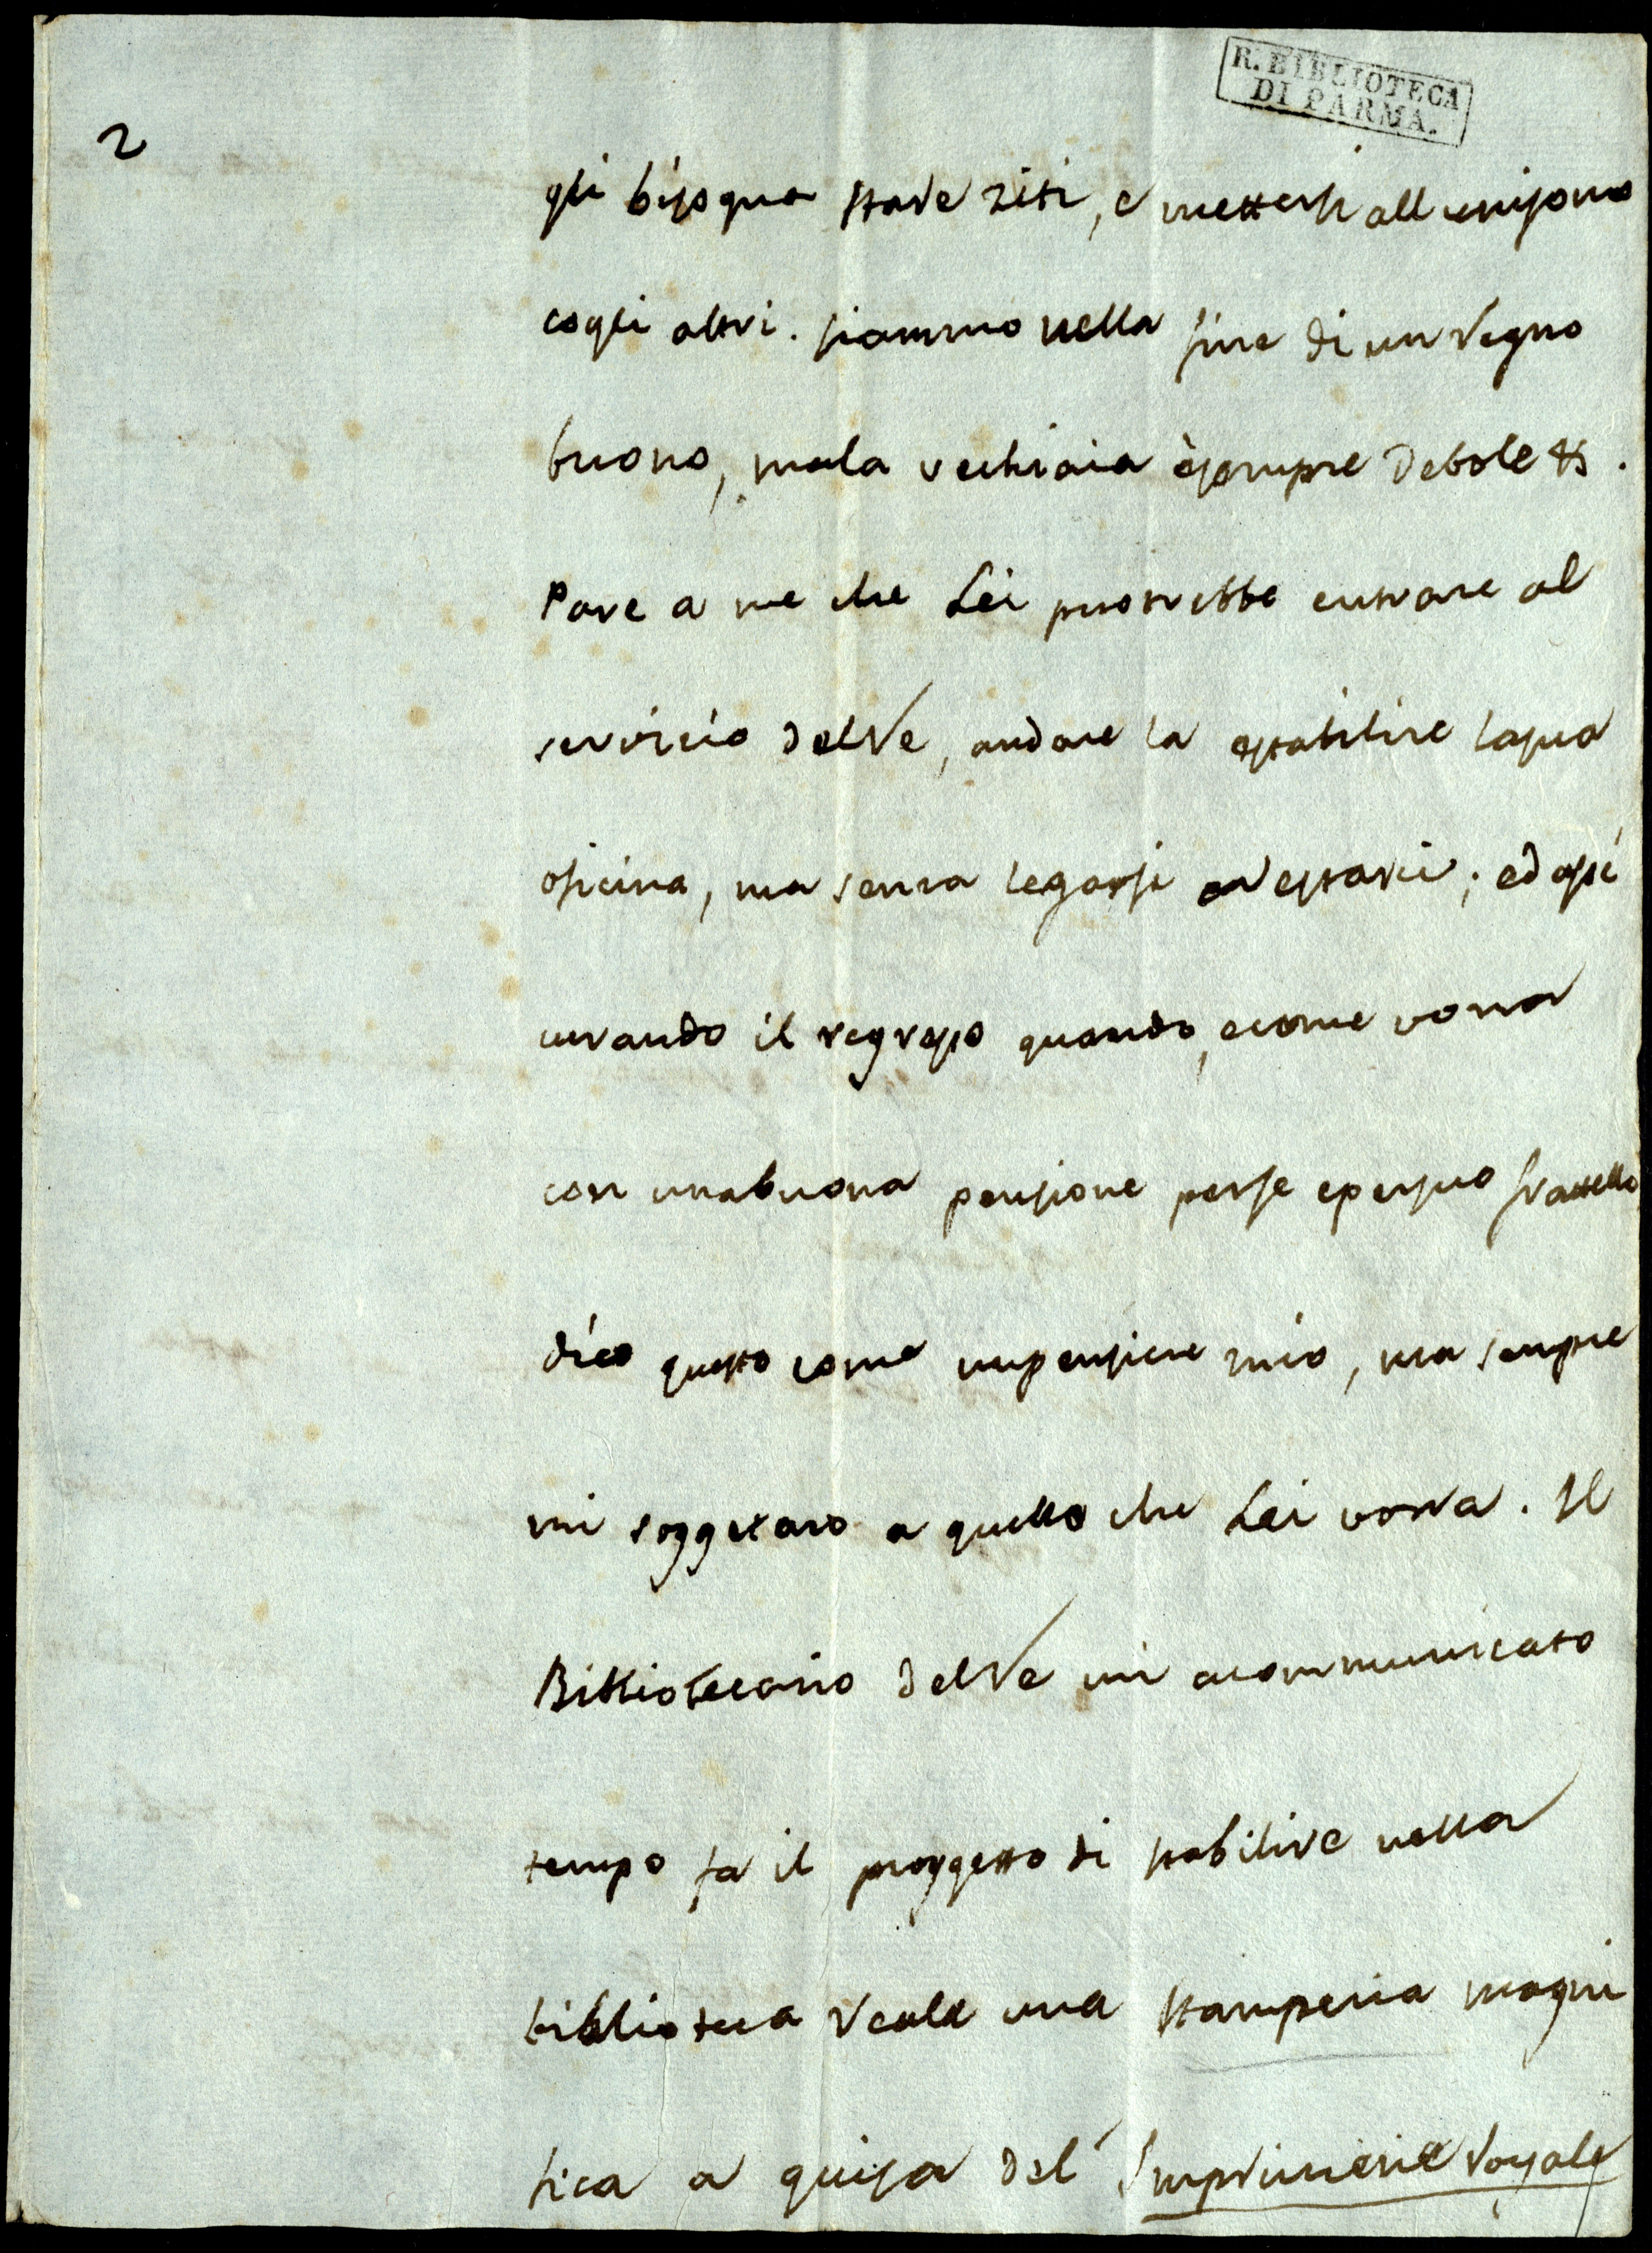 R. BIBLIOTECA
DI PARMA.
2
gli bisogna stare ziti, e mettersi all unisono
cogli altri. siammo nella fine di un regno
buono, ma la vechiaia è sempre debole &.
Pare a me che Lei puotrebbe entrare al
servicio del Re, andare la estabilire la sua
oficina, ma senza legarsi a restarci; ed assi
curando il regresso quando, e come vorra
con una buona pensione per se e per suo frattello
dico questo come un pensiere mio, ma sempre
mi soggetaro a quello che Lei vorra. Il
Bibliotecario del Re mi a communicato
tempo fa il proggetto di stabilire nella
biblioteca reale una stamperia magni
fica a guisa del' Imprimerie royale